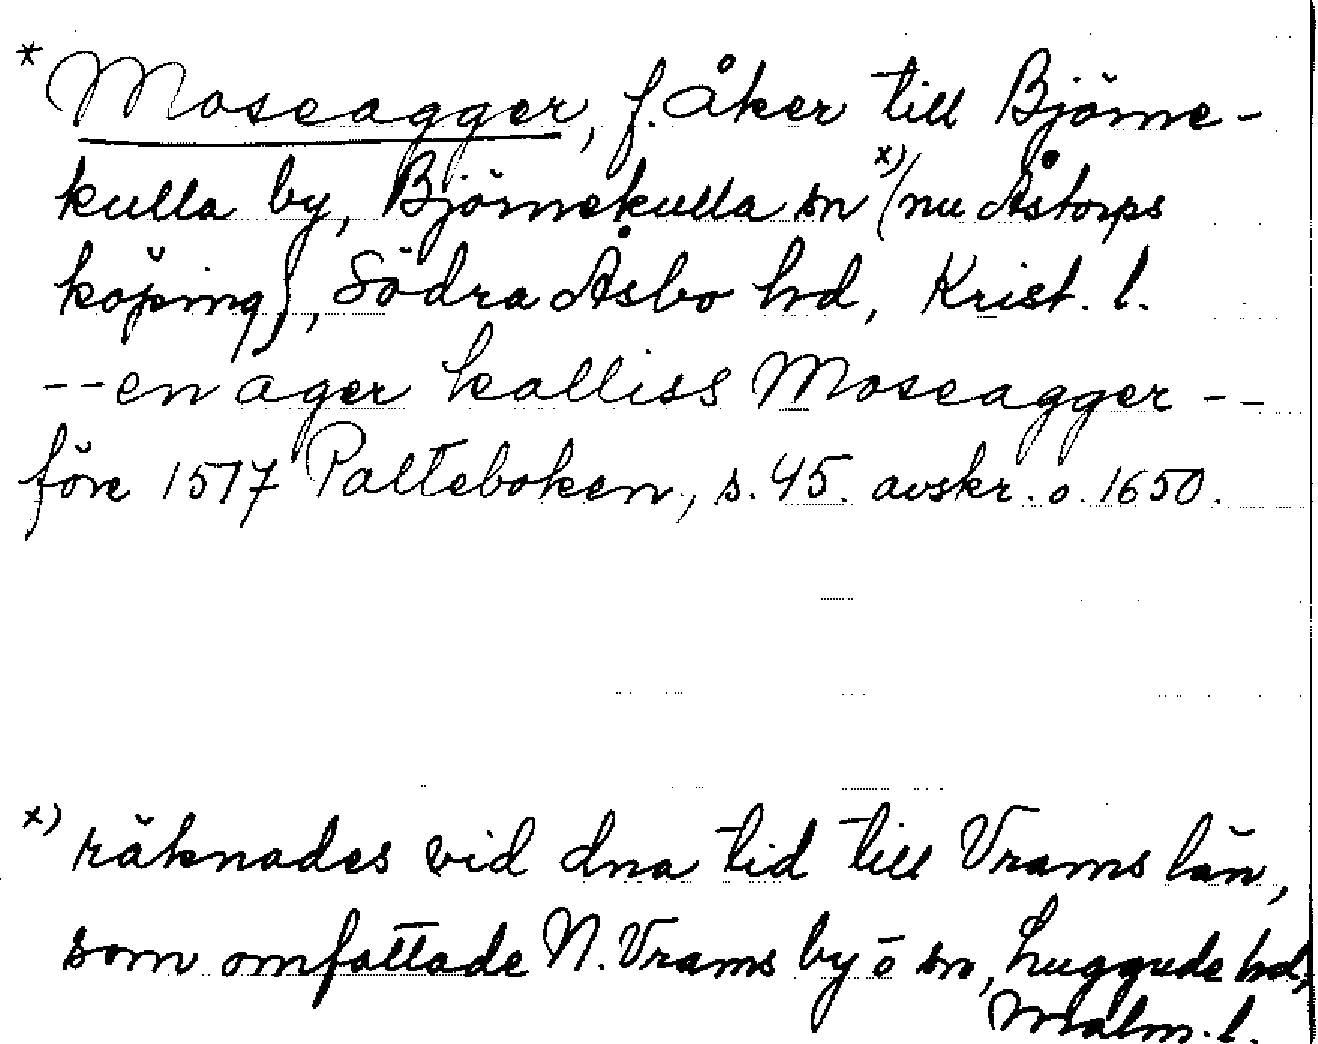 * Moseagger, f. åker till Björne-
kulla by, Björnekulla sn x) (nu Åstorps
köping), Södra Åsbo hd, Krist. l.
-- en ager kalliss Moseagger --
före 1517 Palteboken, s. 45. avskr. o. 1650.
x) räknades vid dna tid till Vrams län,
som omfattade N. Vrams by o sn, Luggude hd,
Malm. l.